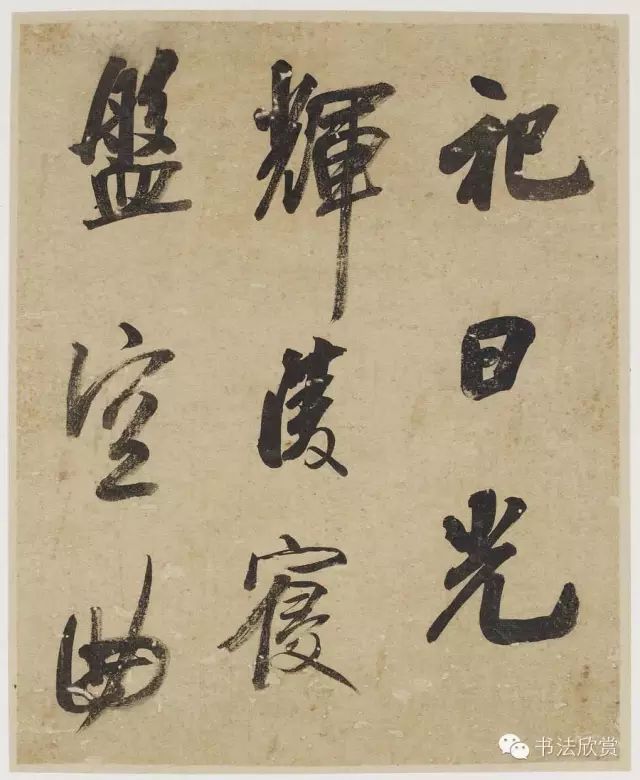 祀日光
輝陵寢
盤空曲
书法欣赏